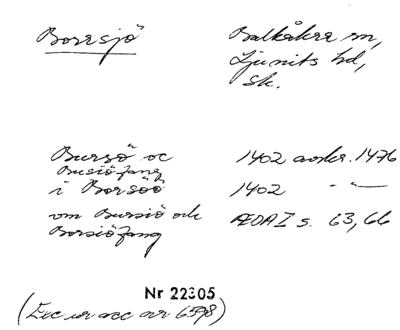 Borrsjö
Balkåkra sn,
Ljunits hd,
Sk.
Bursö oc
Busiöfang
1402 avskr. 1476
i Borsöö
1402 -"-
vm Bursiö och
Borsiöfang
ÆDA I s. 63, 66
Nr 22305
(Exc ur acc nr 6598)